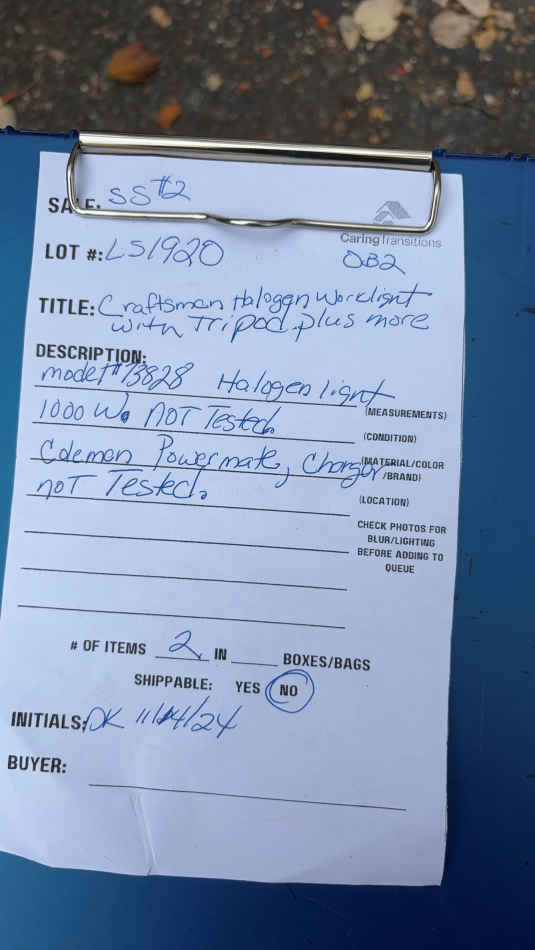 SALE: SS #2
CaringTransitions
LOT #: LS1920
OB2
TITLE: Craftsman Halogen Worklight
with Tripod. plus more
DESCRIPTION:
model# 73828 Halogen light
(MEASUREMENTS)
1000 W. NOT Tested.
(CONDITION)
Coleman Powermate, Charger
(MATERIAL/COLOR
/BRAND)
noT Tested.
(LOCATION)
CHECK PHOTOS FOR
BLUR/LIGHTING
BEFORE ADDING TO
QUEUE
# OF ITEMS 2 IN ____ BOXES/BAGS
SHIPPABLE: YES NO
INITIALS: DK 11/14/24
BUYER: